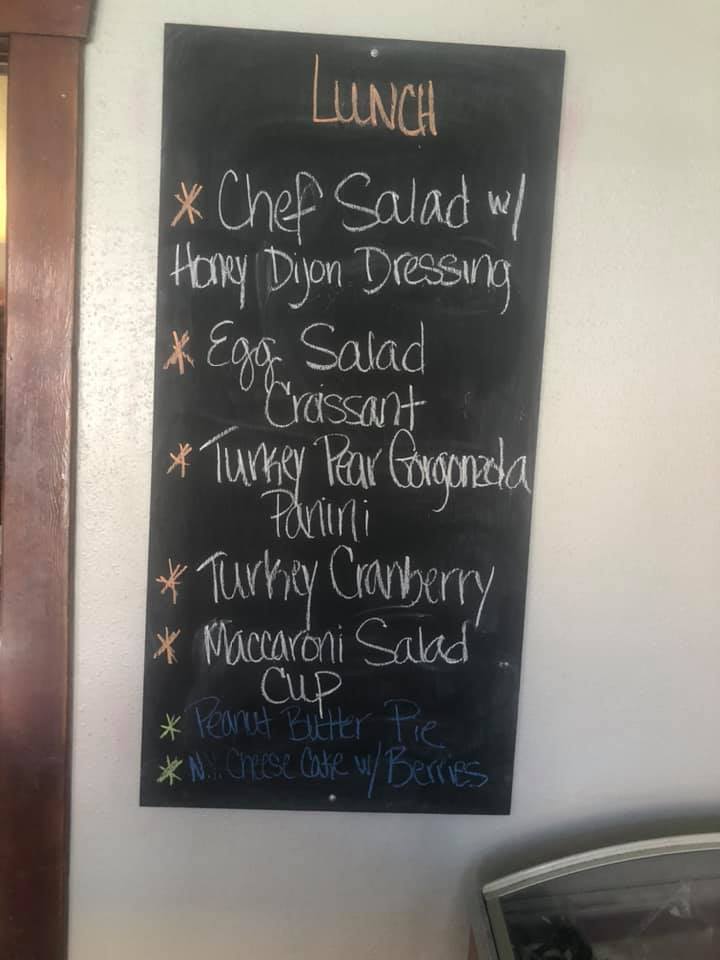 LUNCH
* Chef Salad w/
Honey Dijon Dressing
* Egg Salad
Croissant
* Turkey Pear Gorgonzola
Panini
* Turkey Cranberry
* Maccaroni Salad
Cup
* Peanut Butter Pie
* N.Y. Cheese Cake w/ Berries